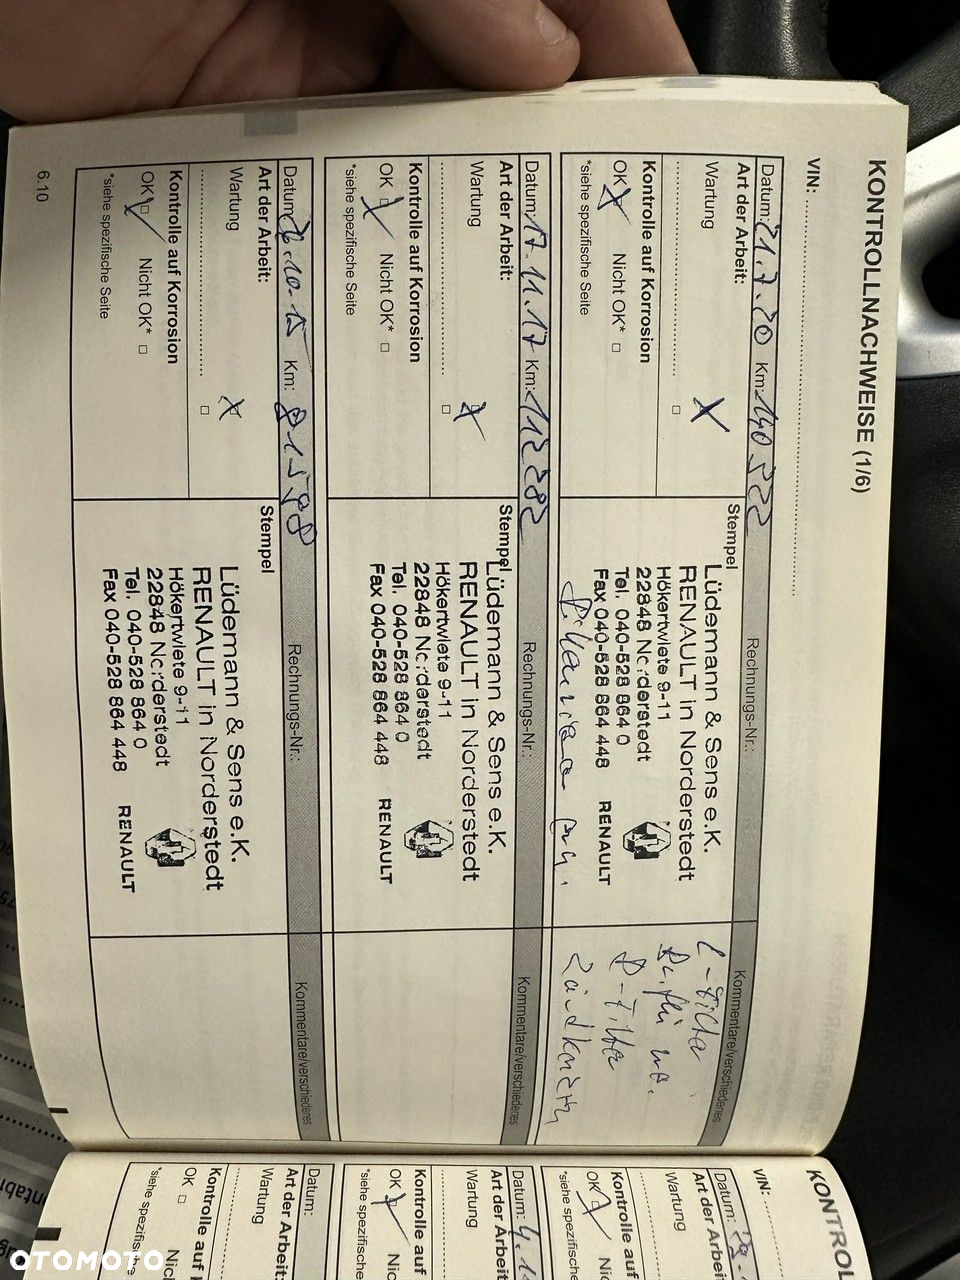 KONTROLLNACHWEISE (1/6)
VIN:
Datum: 21.7.20 Km: 140 522 Rechnungs-Nr.: Kommentare/verschiedenes
Art der Arbeit:
Wartung X
Kontrolle auf Korrosion
OK X Nicht OK* □
*siehe spezifische Seite
Stempel
Lüdemann & Sens e.K.
RENAULT in Norderstedt
Hökertwiete 9-11
22848 Norderstedt
Tel. 040-528 864 0
Fax 040-528 864 448
RENAULT
Datum: 17.11.17 Km: 112 282 Rechnungs-Nr.: Kommentare/verschiedenes
Art der Arbeit:
Wartung X
Kontrolle auf Korrosion
OK X Nicht OK* □
*siehe spezifische Seite
Stempel
Lüdemann & Sens e.K.
RENAULT in Norderstedt
Hökertwiete 9-11
22848 Norderstedt
Tel. 040-528 864 0
Fax 040-528 864 448
RENAULT
Datum: Km: Rechnungs-Nr.: Kommentare/verschiedenes
Art der Arbeit:
Wartung X
Kontrolle auf Korrosion
OK Nicht OK* □
*siehe spezifische Seite
Stempel
Lüdemann & Sens e.K.
RENAULT in Norderstedt
Hökertwiete 9-11
22848 Norderstedt
Tel. 040-528 864 0
Fax 040-528 864 448
RENAULT
6.10
KONTROL
VIN:
Datum:
Art der Arbei
Wartung
Kontrolle auf
OK
*siehe spezifisc
Datum:
Art der Arbeit
Wartung
Kontrolle auf
OK Nic
*siehe spezifisch
Datum:
Art der Arbeit:
Wartung
Kontrolle auf
OK □ Nic
*siehe spezifisch
OTOMOTO